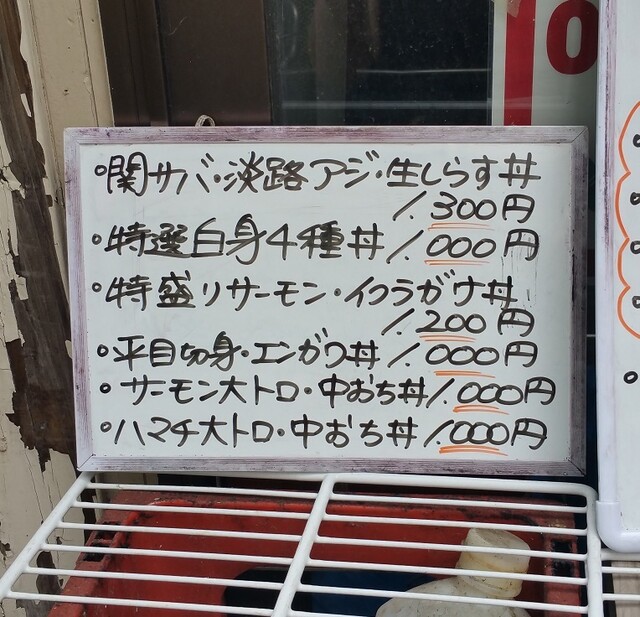 ・関サバ・淡路アジ・生しらす丼
1.300円
・特選白身4種丼 1.000円
・特盛りサーモン・イクラガケ丼
1.200円
・平目切身・エンガワ丼 1.000円
・サーモン大トロ・中おち丼 1.000円
・ハマチ大トロ・中おち丼 1.000円
10